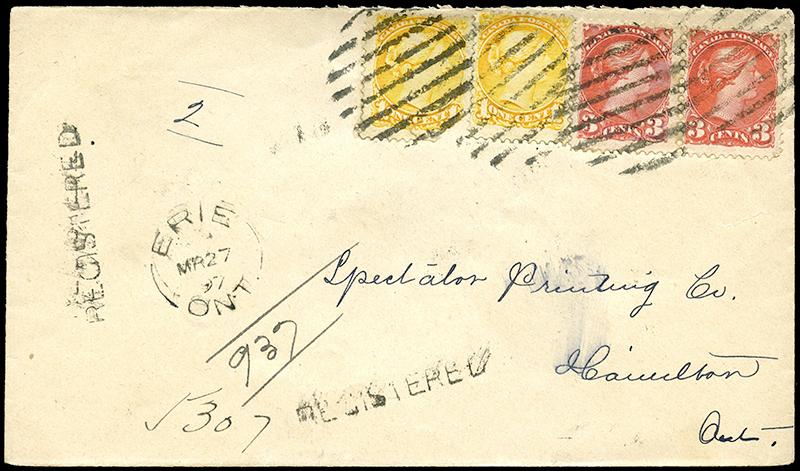 CANADA POSTAGE
ONE CENT
1 ONE CENT
CANADA POSTAGE
3 CENTS 3
CANADA POSTAGE
3 CENTS 3
2
REGISTERED
ERIE
MR 27
97
ONT
Spectator Printing Co.
937
Hamilton
5307
REGISTERED
Ont.